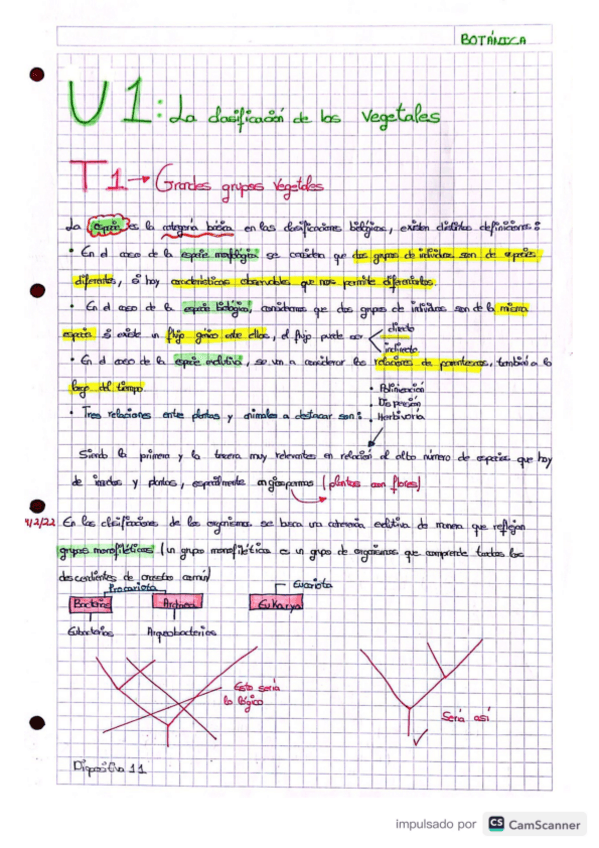 BOTÁNICA
U1: La clasificación de los vegetales
T1 → Grandes grupos vegetales
La especie es la categoría básica en las clasificaciones biológicas, existen distintas definiciones:
• En el caso de la especie morfológica se considera que dos grupos de individuos son de especies
diferentes, si hay características observables que nos permite diferenciarlos.
• En el caso de la especie biológica, consideramos que dos grupos de individuos son de la misma
especie si existe un flujo génico entre ellos, el flujo puede ser
directo
indirecto
• En el caso de la especie evolutiva, se van a considerar las relaciones de parentescos, también a lo
largo del tiempo
• Tres relaciones entre plantas y animales a destacar son:
• Polinización
• Dispersión
• Herbivoría
Siendo la primera y la tercera muy relevantes en relación al alto número de especies que hay
de insectos y plantas, especialmente angiospermas (plantas con flores)
4/2/22 En las clasificaciones de los organismos se busca una coherencia evolutiva de manera que reflejan
grupos monofiléticos (un grupo monofilético es un grupo de organismos que comprende todos los
descendientes de ancestro común)
Procariota
Eucariota
Bacterias
Archaea
Eukarya
Eubacterias
Arqueobacterias
Esto sería
lo lógico
Sería así
Diapositiva 11
impulsado por CS CamScanner